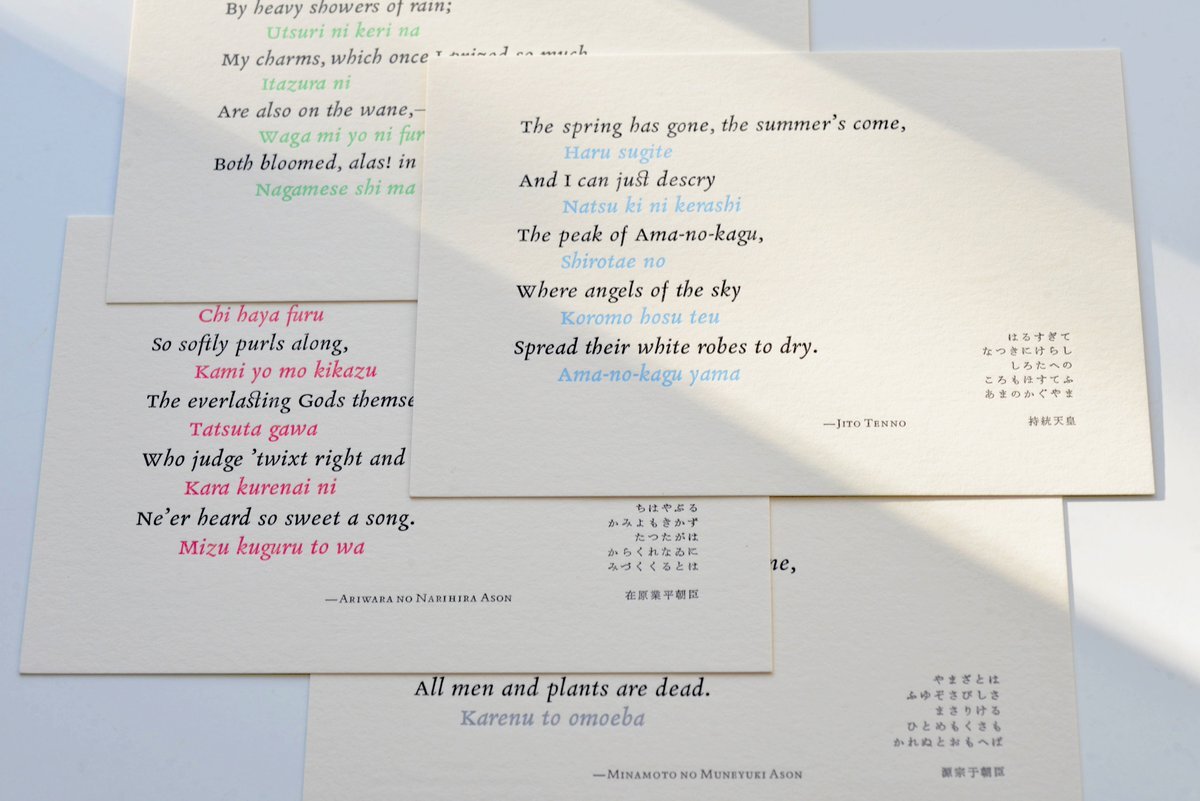 By heavy showers of rain;
Utsuri ni keri na
My charms, which once I prized so much
Itazura ni
Are also on the wane,—
Waga mi yo ni fur
Both bloomed, alas! in
Nagamese shi ma
The spring has gone, the summer's come,
Haru sugite
And I can just descry
Natsu ki ni kerashi
The peak of Ama-no-kagu,
Shirotae no
Where angels of the sky
Koromo hosu teu
Spread their white robes to dry.
Ama-no-kagu yama
—Jito Tenno
はるすぎて
なつきにけらし
しろたへの
ころもほすてふ
あまのかぐやま
持統天皇
Chi haya furu
So softly purls along,
Kami yo mo kikazu
The everlasting Gods themse
Tatsuta gawa
Who judge 'twixt right and
Kara kurenai ni
Ne'er heard so sweet a song.
Mizu kuguru to wa
—Ariwara no Narihira Ason
ちはやぶる
かみよもきかず
たつたがは
からくれなゐに
みづくくるとは
在原業平朝臣
ne,
All men and plants are dead.
Karenu to omoeba
—Minamoto no Muneyuki Ason
やまざとは
ふゆぞさびしさ
まさりける
ひとめもくさも
かれぬとおもへば
源宗于朝臣